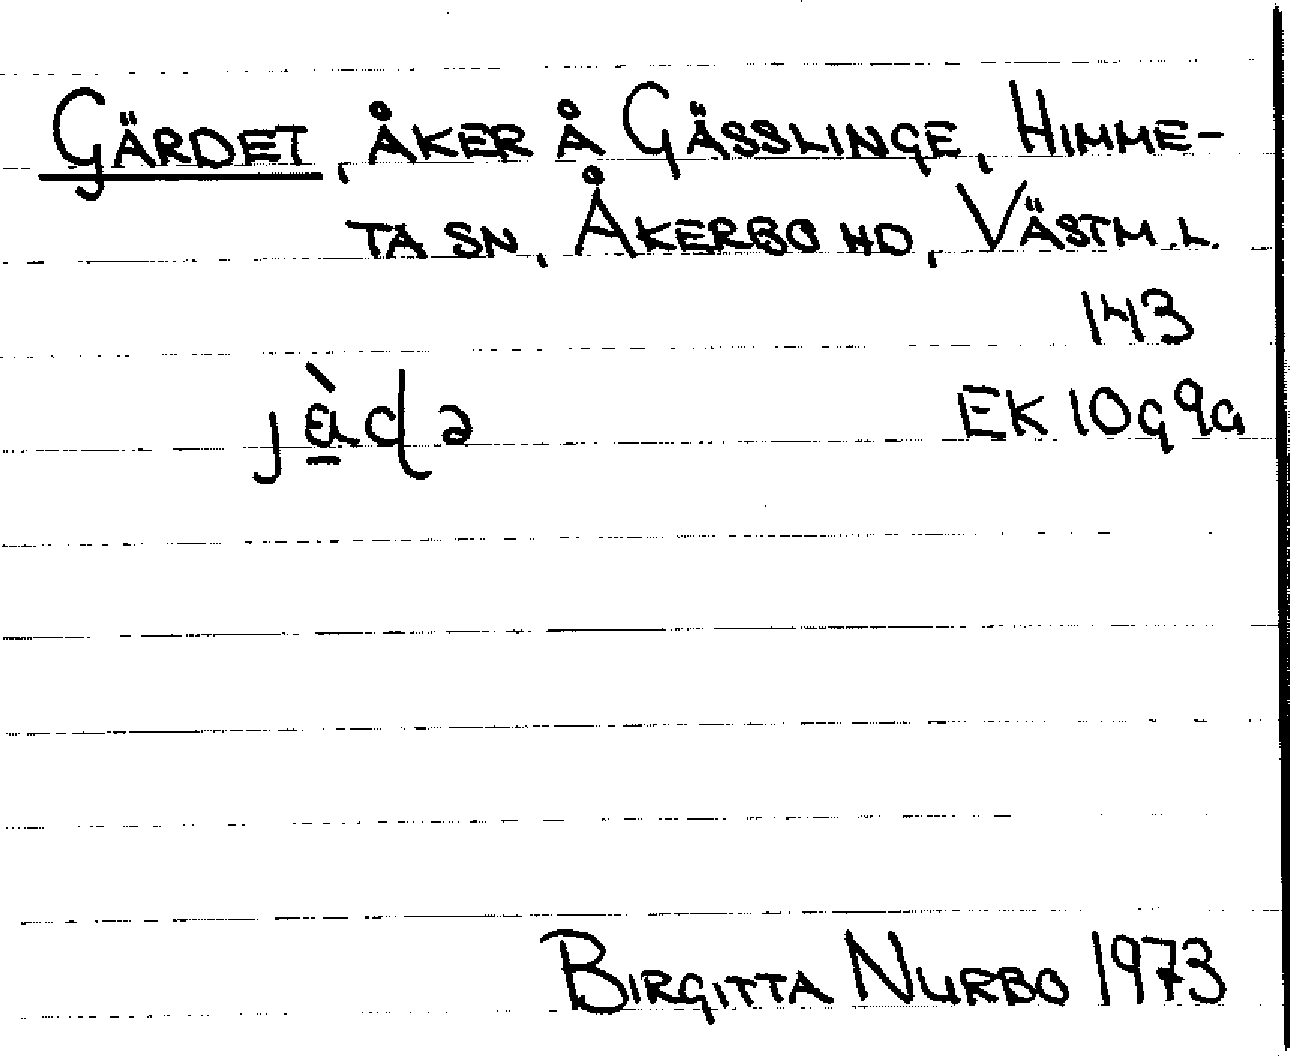 GÄRDET, ÅKER Å GÄSSLINGE, HIMME-
TA SN, ÅKERBO HD, VÄSTM.L.
143
EK 10g9a
BIRGITTA NURBO 1973